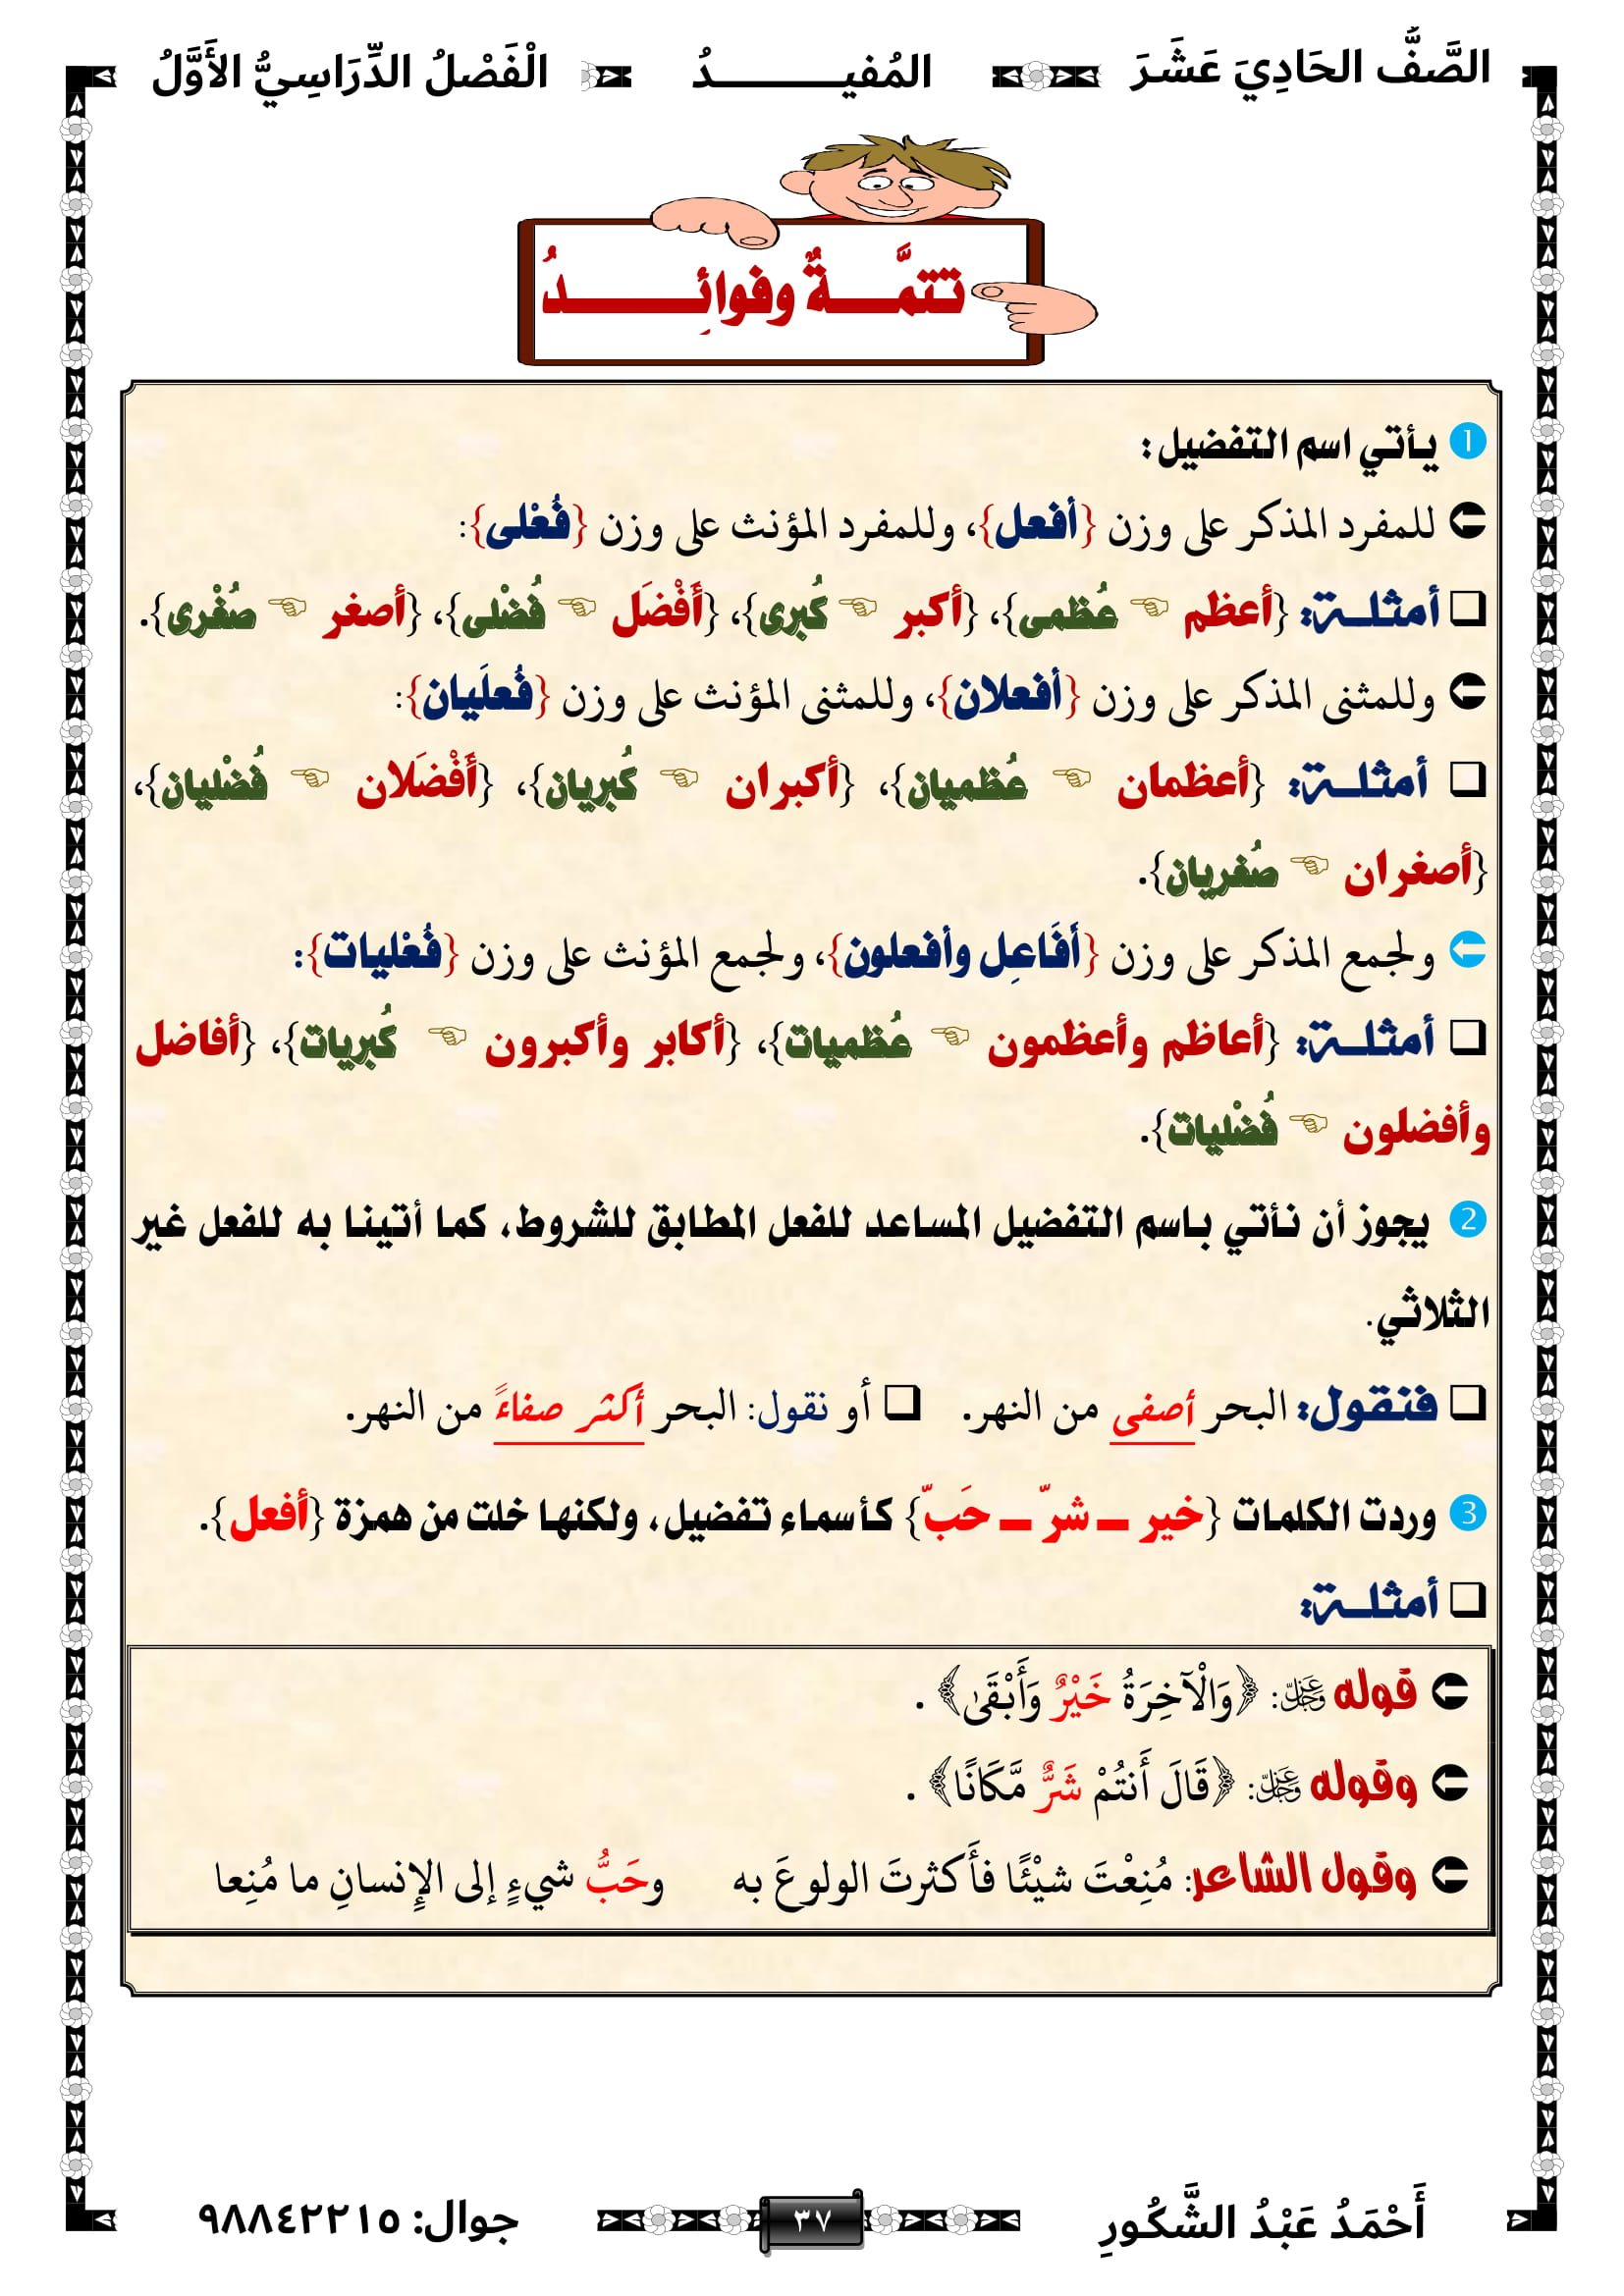 الصَّفُّ الحَادِيَ عَشَرَ المُفيـــــــــــدُ الْفَصْلُ الدِّرَاسِيُّ الأَوَّلُ
تتمَّـــــةٌ وفوائِـــــــــدُ
1 يأتي اسم التفضيل:
للمفرد المذكر على وزن {أفعل}، وللمفرد المؤنث على وزن {فُعْلى}:
أمثلــة: {أعظم ☜ عُظمى}، {أكبر ☜ كُبرى}، {أَفْضَل ☜ فُضْلى}، {أصغر ☜ صُغْرى}.
وللمثنى المذكر على وزن {أفعلان}، وللمثنى المؤنث على وزن {فُعلَيان}:
أمثلــة: {أعظمان ☜ عُظميان}، {أكبران ☜ كُبريان}، {أَفْضَلان ☜ فُضْليان}،
{أصغران ☜ صُغريان}.
ولجمع المذكر على وزن {أَفَاعِل وأفعلون}، ولجمع المؤنث على وزن {فُعْليات}:
أمثلــة: {أعاظم وأعظمون ☜ عُظميات}، {أكابر وأكبرون ☜ كُبريات}، {أفاضل
وأفضلون ☜ فُضْليات}.
2 يجوز أن نأتي باسم التفضيل المساعد للفعل المطابق للشروط، كما أتينا به للفعل غير
الثلاثي.
فنقول: البحر أصفى من النهر. أو نقول: البحر أكثر صفاءً من النهر.
3 وردت الكلمات {خير ـــ شرّ ـــ حَبّ} كأسماء تفضيل، ولكنها خلت من همزة {أفعل}.
أمثلــة:
قوله عَزَّ وَجَلَّ: ﴿وَالْآخِرَةُ خَيْرٌ وَأَبْقَىٰ﴾ .
وقوله عَزَّ وَجَلَّ: ﴿قَالَ أَنتُمْ شَرٌّ مَّكَانًا﴾ .
وقول الشاعر: مُنِعْتَ شيْئًا فأَكثرتَ الولوعَ به وحَبُّ شيءٍ إلى الإِنسانِ ما مُنِعا
أَحْمَدُ عَبْدُ الشَّكُورِ ٣٧ جوال: ٩٨٨٤٢٢١٥